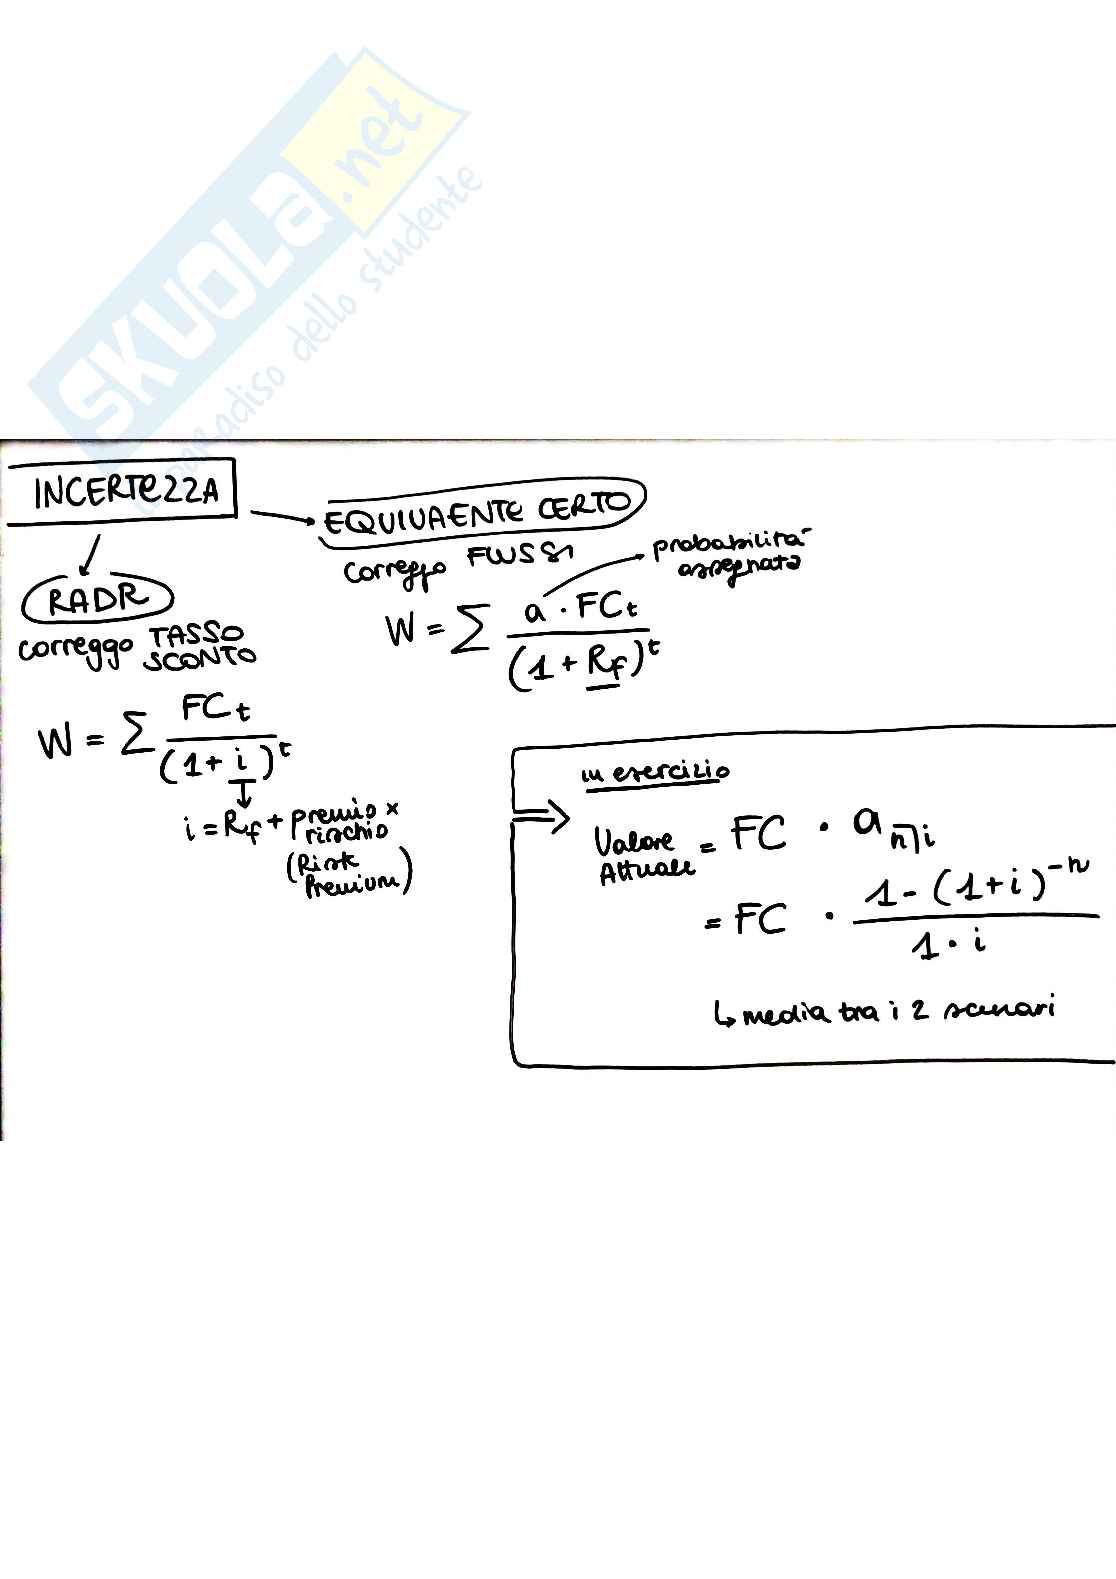 SKUOLA.net
il paradiso dello studente
INCERTEZZA
EQUIVAENTE CERTO
correggo FLUSSI
probabilità
assegnata
W = Σ a · FCt / (1 + Rf)^t
RADR
correggo TASSO
SCONTO
W = Σ FCt / (1 + i)^t
i = Rf + premio x
rischio
(Risk
Premium)
in esercizio
Valore
Attuale = FC · a n⌉i
= FC · 1 - (1+i)^-n / 1 · i
↳ media tra i 2 scenari